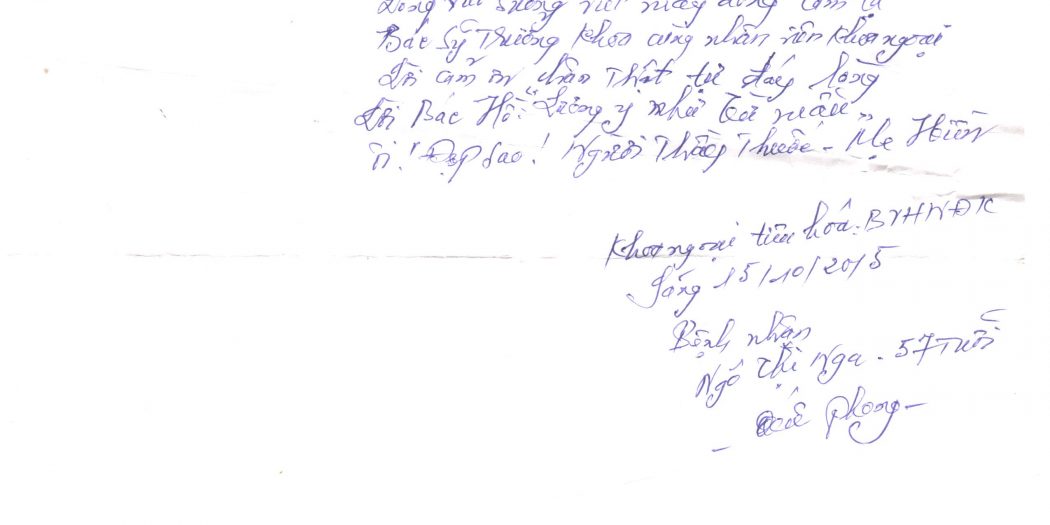 viết mấy dòng cảm tạ
Bác Sỹ Trưởng khoa cùng nhân viên khoa ngoại
Tôi cảm ơn chân thật từ đáy lòng
Lời Bác Hồ: "Lương y như từ mẫu"
Ôi! Đẹp sao! Người Thầy Thuốc - Mẹ Hiền
Khoa ngoại tiêu hoá. BVHNĐK
Sáng 15/10/2015
Bệnh nhân
Ngô Thị Nga - 57 Tuổi
Phong -